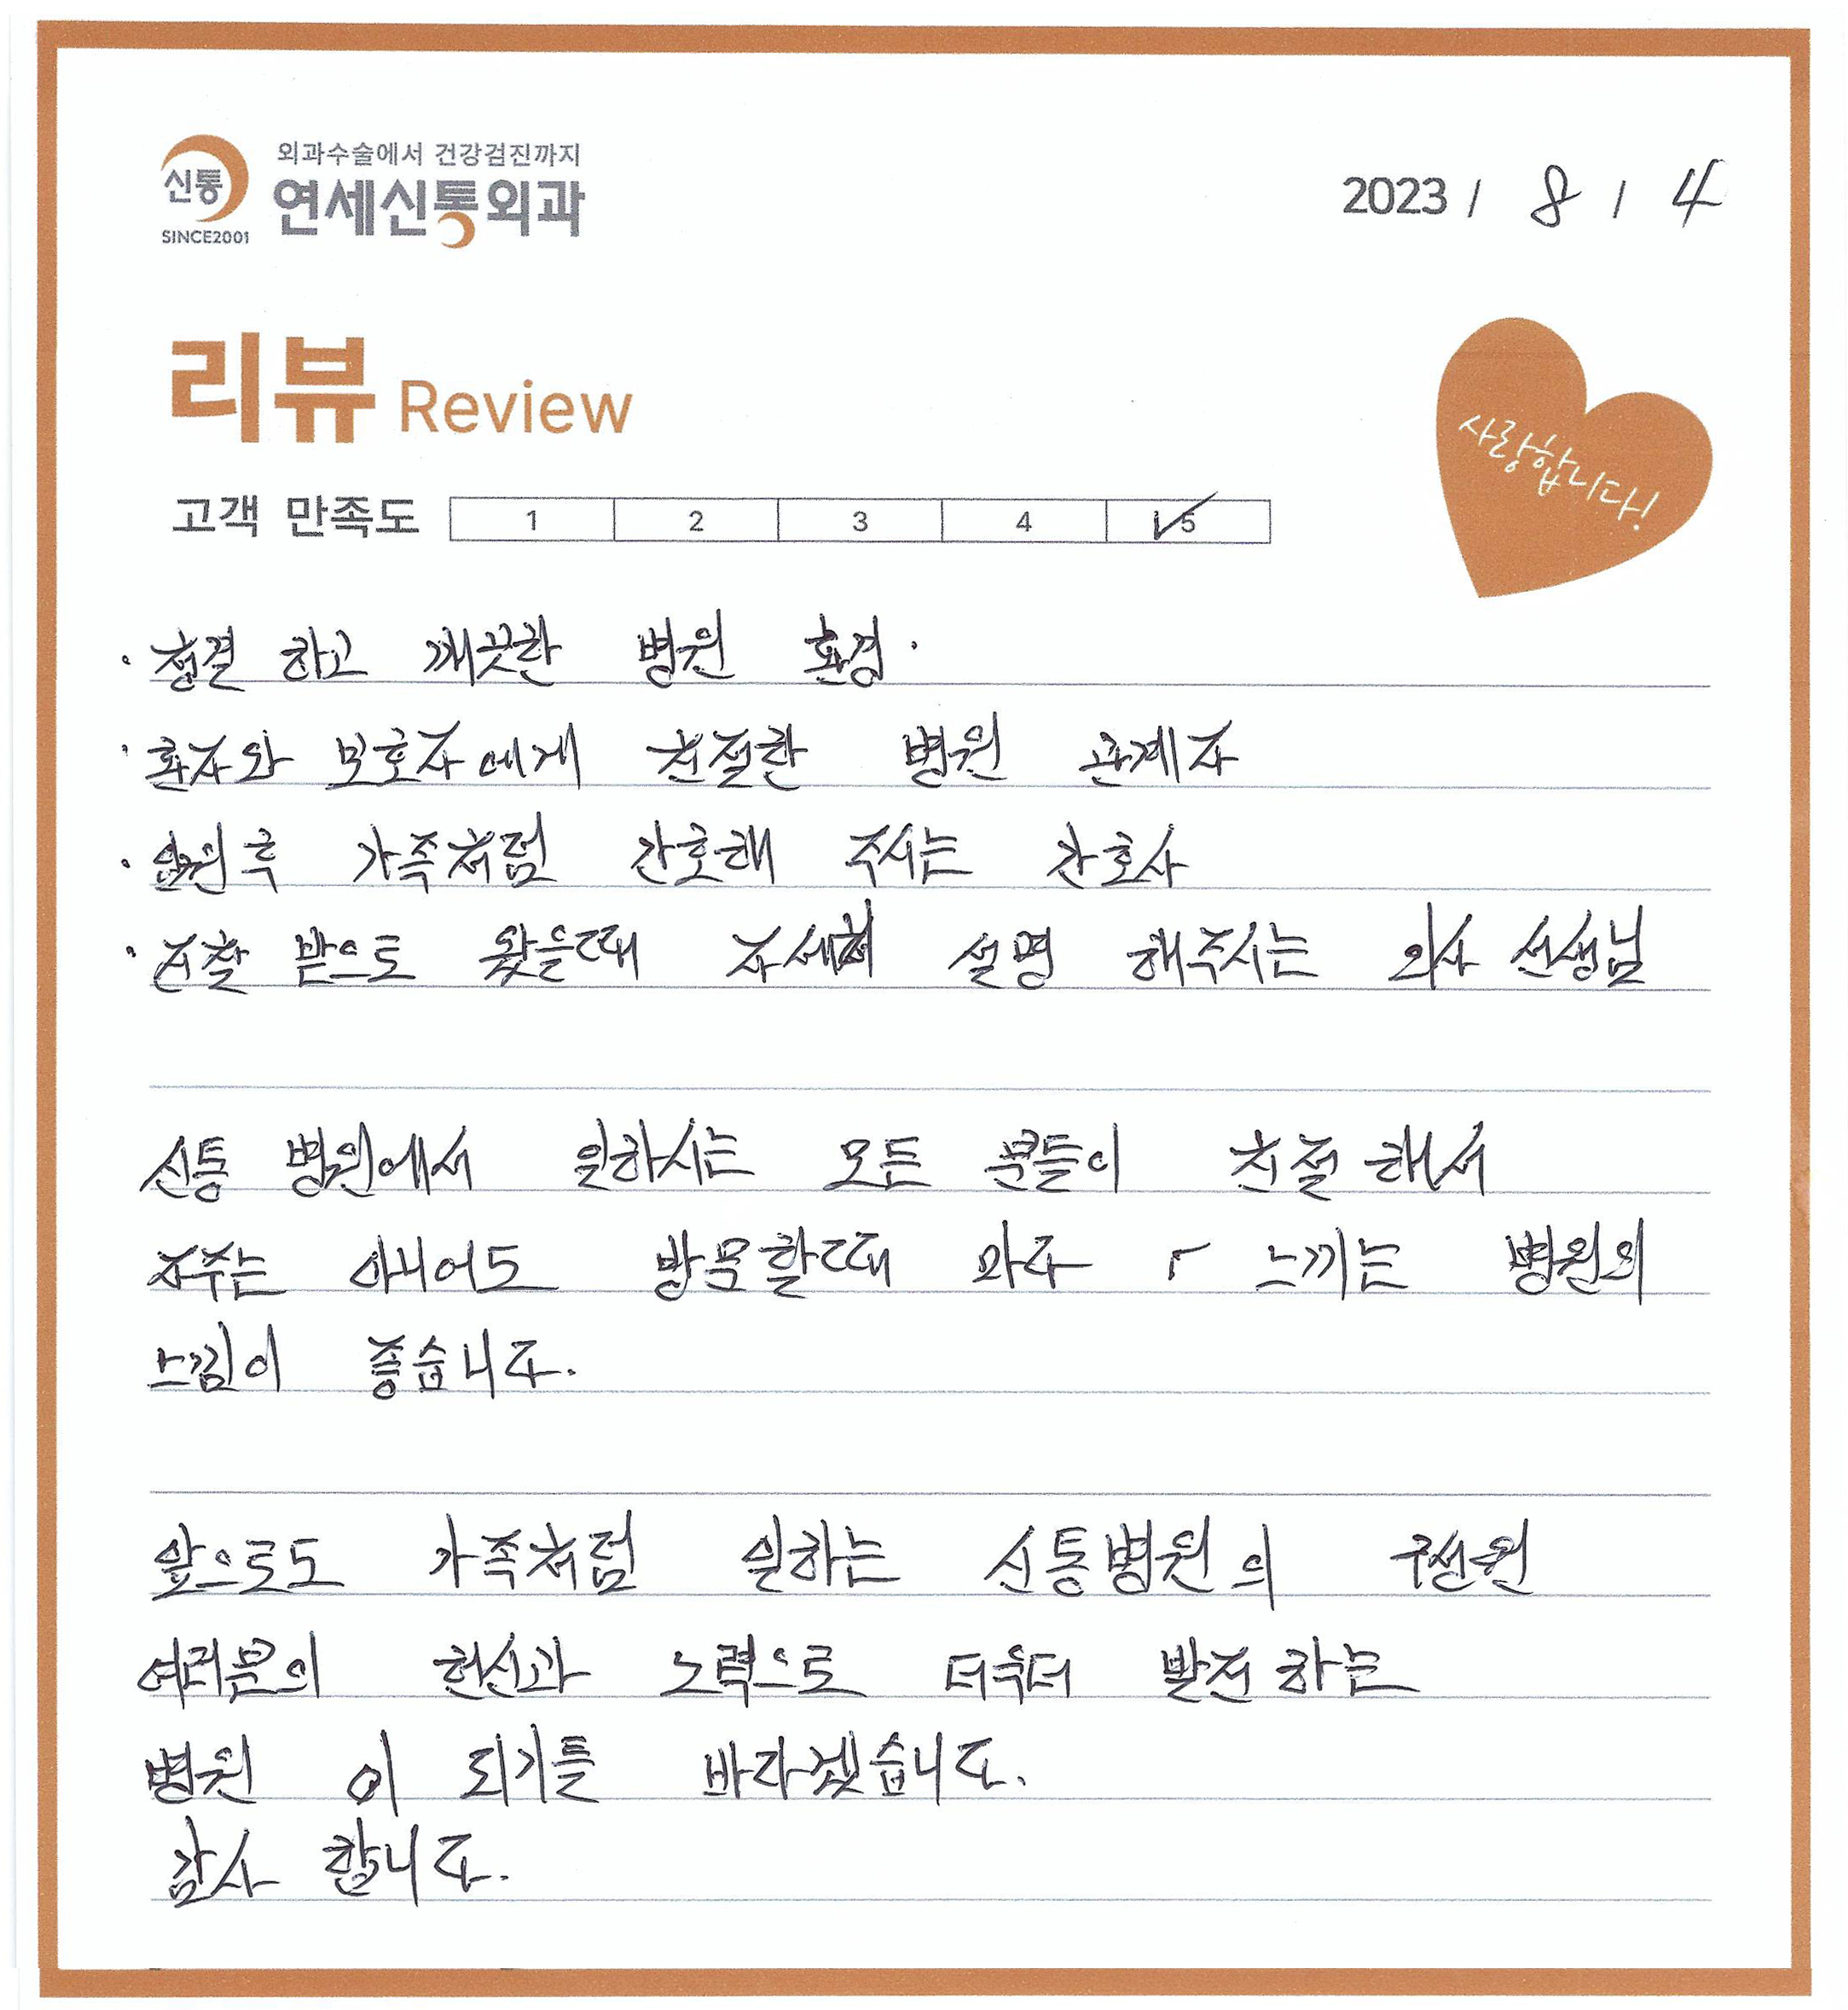 외과수술에서 건강검진까지
신통
연세신통외과
SINCE2001
2023 / 8 / 4
리뷰 Review
사랑합니다!
고객 만족도 1 2 3 4 5
· 청결 하고 깨끗한 병원 환경.
· 환자와 보호자에게 친절한 병원 관계자
· 입원후 가족처럼 간호해 주시는 간호사
· 진찰 받으로 왔을때 자세히 설명 해주시는 의사 선생님
신통 병원에서 일하시는 모든 분들이 친절 해서
자주는 아니어도 방문할때 마다 느끼는 병원의
느낌이 좋습니다.
앞으로도 가족처럼 일하는 신통병원의 구성원
여러분의 헌신과 노력으로 더욱더 발전 하는
병원 이 되기를 바라겠습니다.
감사 합니다.